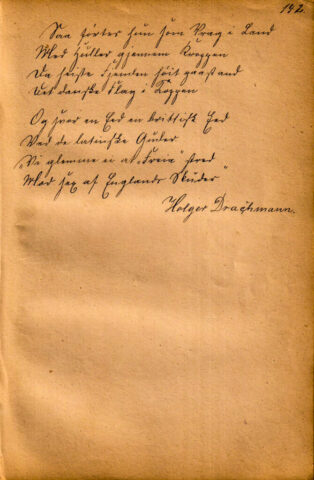 192.
Saa førtes hun som Vrag i Land
Med Huller gjennem Kroppen
Da heiste Fjenden høit paastand
Det danske Flag i Toppen
Og svor en Eed en brittisk Eed
Ved de latinske Guder
Vi glemme ei at "Freia" stred
Mod sex af Englands Skuder"
Holger Drachmann.